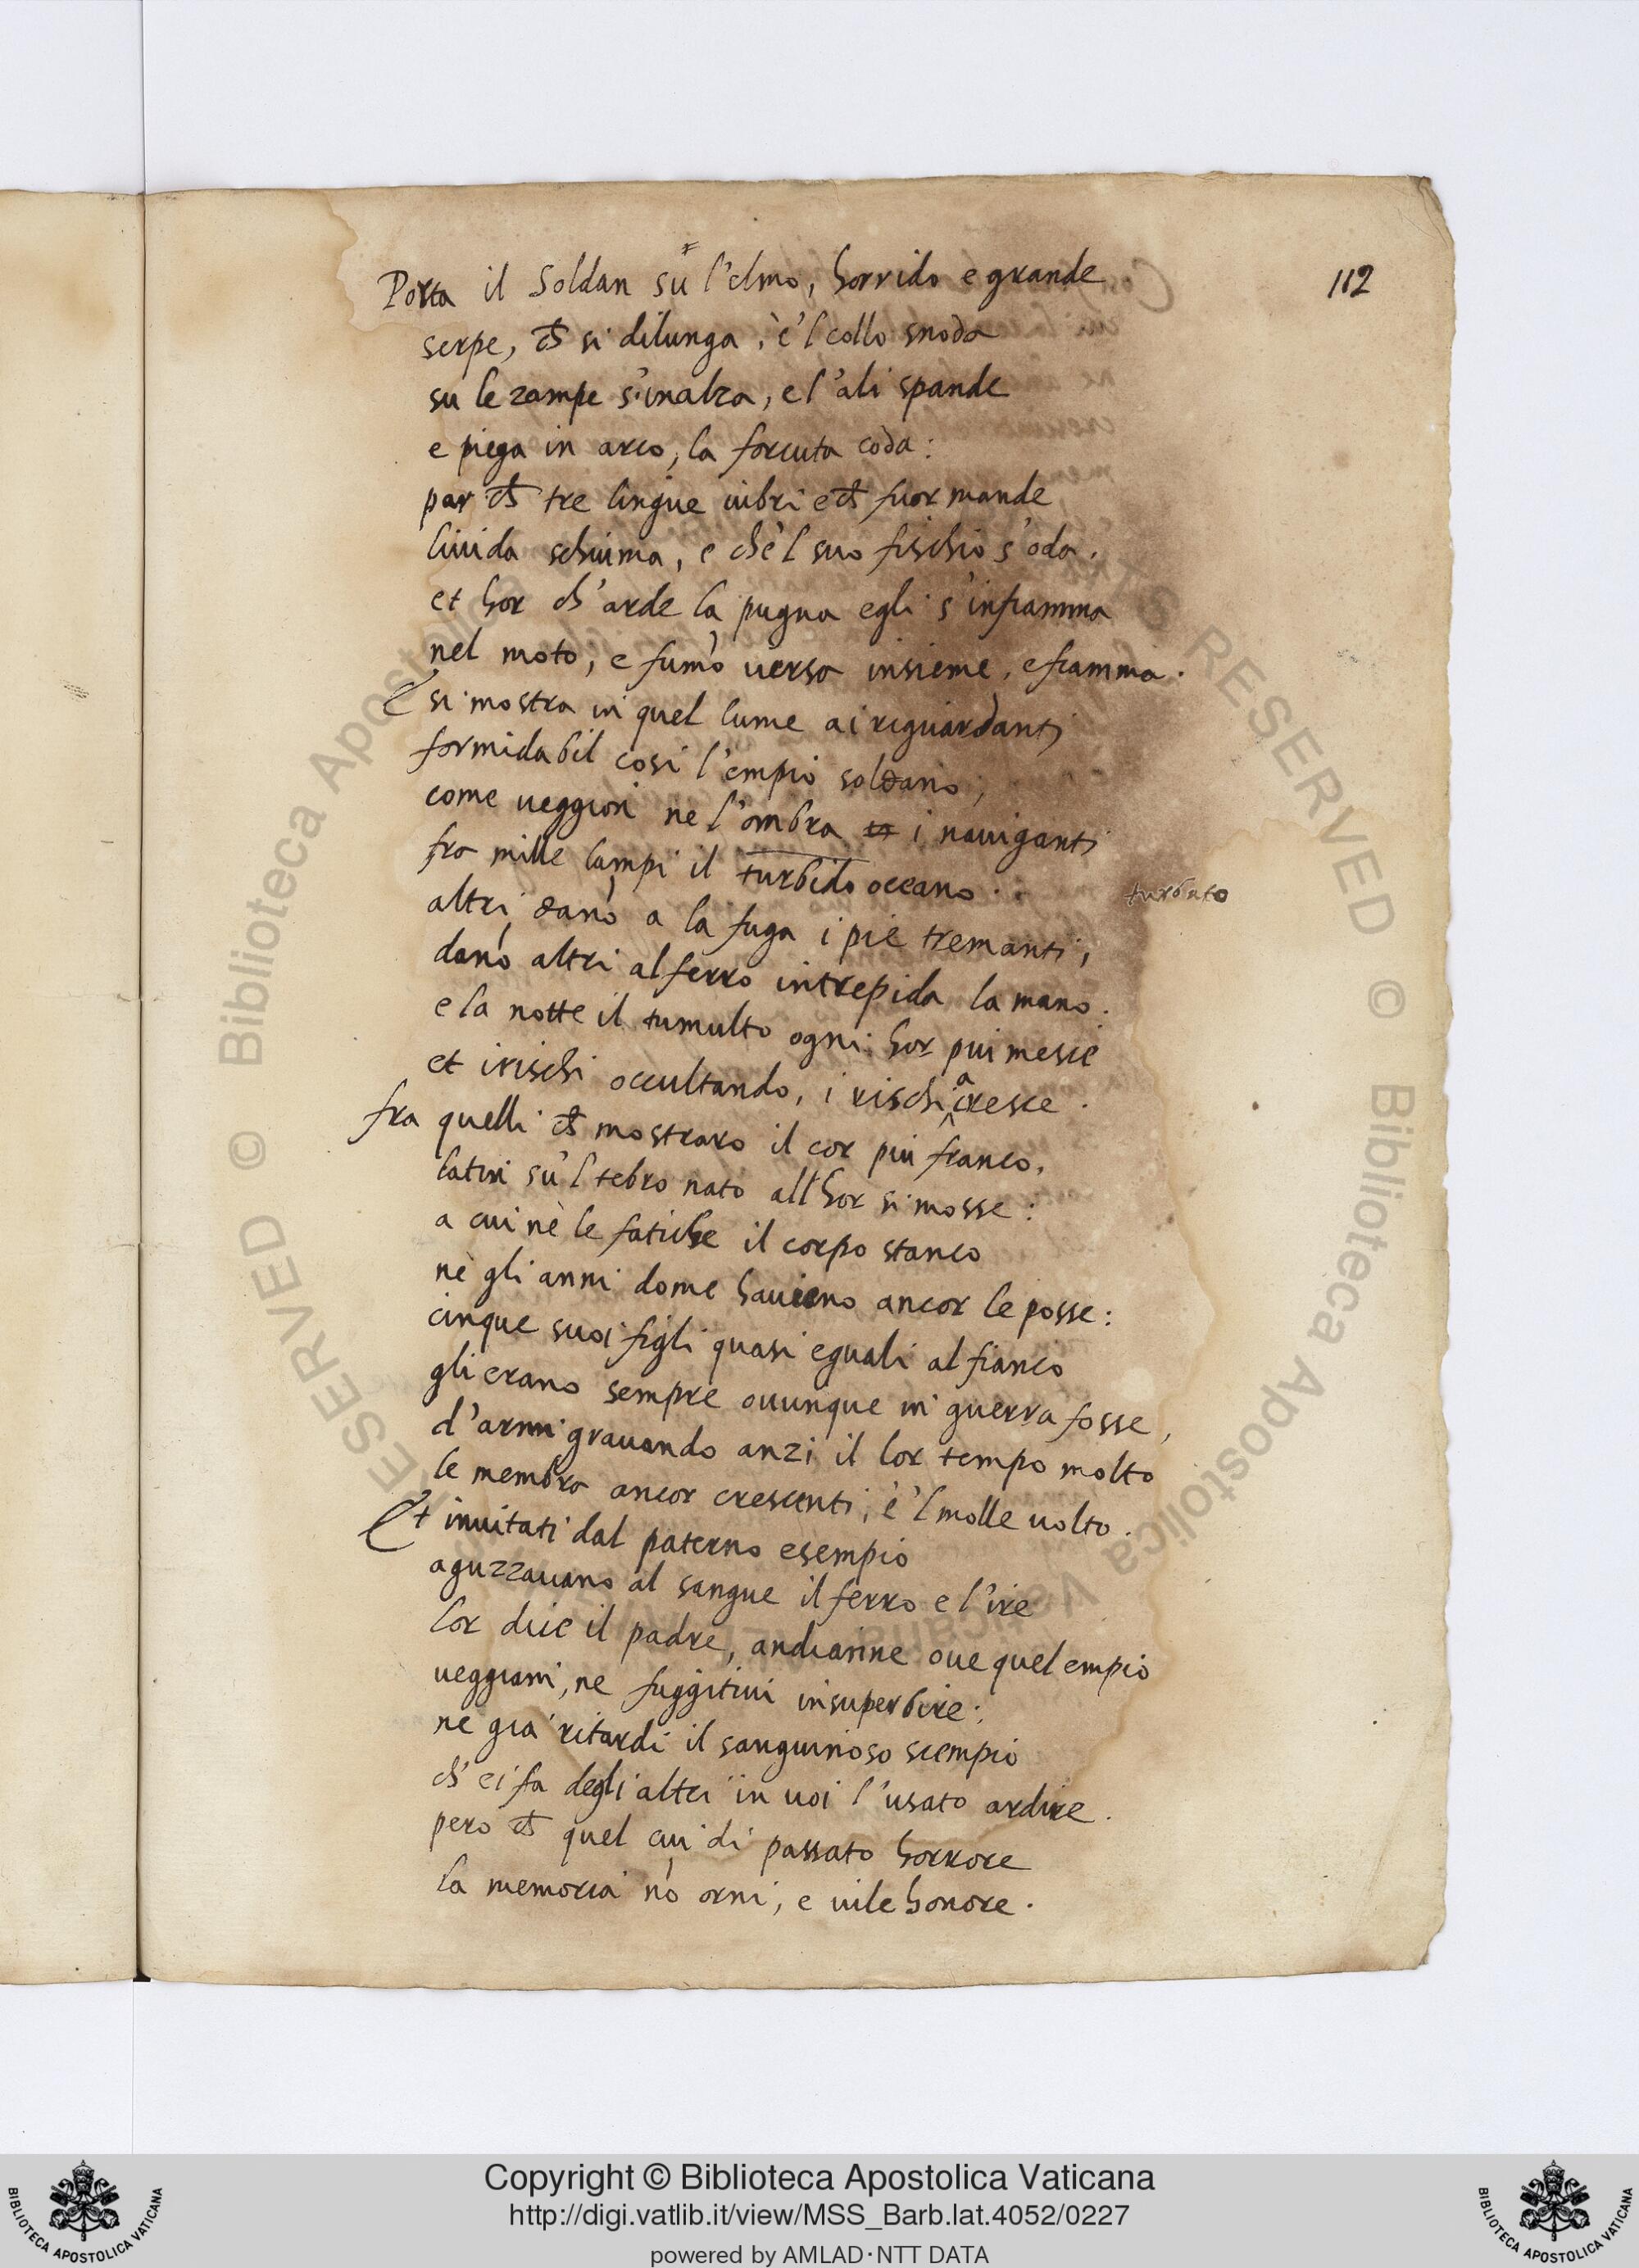 112
Porta il Soldan sù l'elmo, horrido e grande
serpe, ch̄ si dilunga, e 'l collo snoda
su le zampe s'inalza, e l'ali spande
e piega in arco, la forcuta coda:
par ch̄ tre lingue uibri e ch̄ fuor mande
liuida schiuma, e che 'l suo fischio s'oda.
et hor ch'arde la pugna egli s'infiamma
nel moto, e fumo uersa insieme, e fiamma.
E si mostra in quel lume ai riguardanti
formidabil cosi l'empio soldano,
come ueggion ne l'ombra i nauiganti
fra mille lampi il turbido oceano.
turbato
altri dano a la fuga i pie tremanti,
dano altri al ferro intrepida la mano.
e la notte il tumulto ogni hor piu mesce
et i rischi occultando, i rischi acresce.
fra quelli ch̄ mostraro il cor piu franco,
latin su 'l tebro nato all'hor si mosse:
a cui nè le fatiche il corpo stanco
nè gli anni dome haueano ancor le posse:
cinque suoi figli quasi eguali al fianco
gli erano sempre ouunque in guerra fosse,
d'armi grauando anzi il lor tempo molto
le membra ancor crescenti, e 'l molle uolto.
Et inuitati dal paterno esempio
aguzzauano al sangue il ferro e l'ire
lor dice il padre, andianne oue quel empio
ueggiam, ne fuggitiui insuperbire:
ne già ritardi il sanguinoso scempio
ch'ei fa degli altri in uoi l'usato ardire.
pero ch̄ quel cui di passato horrore
la memoria nō orni, e uile honore.
Copyright © Biblioteca Apostolica Vaticana
http://digi.vatlib.it/view/MSS_Barb.lat.4052/0227
powered by AMLAD·NTT DATA
BIBLIOTECA APOSTOLICA VATICANA
BIBLIOTECA APOSTOLICA VATICANA